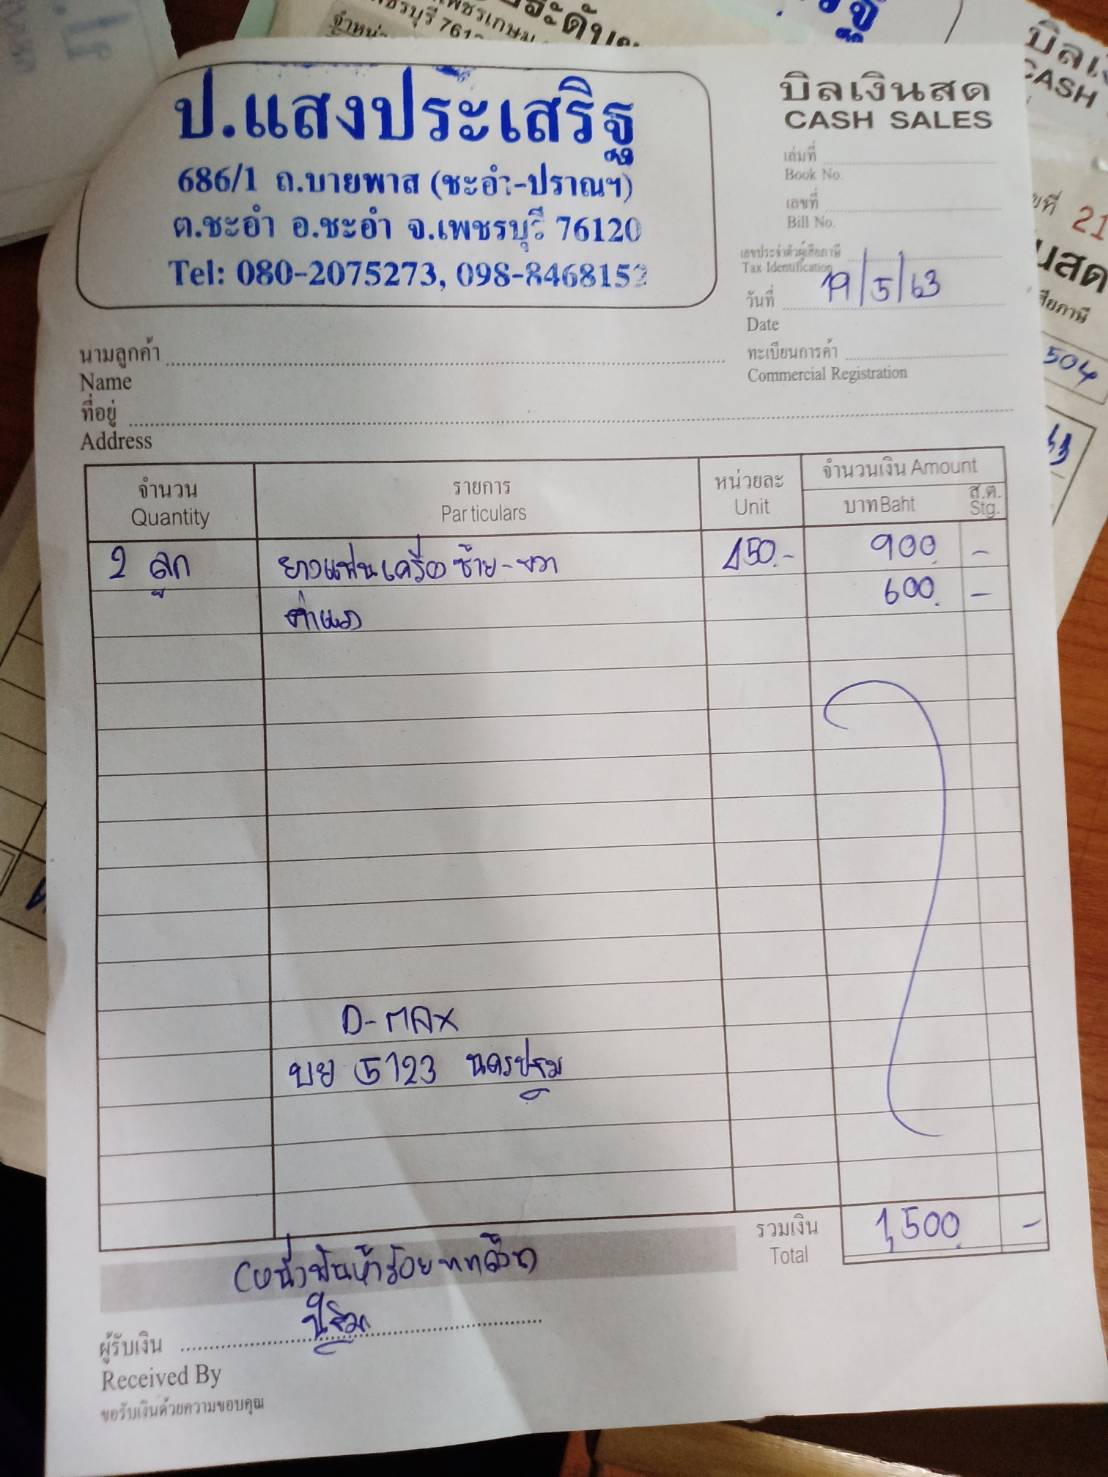 ป.แสงประเสริฐ
686/1 ถ.บายพาส (ชะอำ-ปราณฯ)
ต.ชะอำ อ.ชะอำ จ.เพชรบุรี 76120
Tel: 080-2075273, 098-8468152
บิลเงินสด
CASH SALES
เล่มที่
Book No.
เลขที่
Bill No.
เลขประจำตัวผู้เสียภาษี
Tax Identification
วันที่ 19/5/63
Date
ทะเบียนการค้า
Commercial Registration
นามลูกค้า
Name
ที่อยู่
Address
จำนวน รายการ หน่วยละ จำนวนเงิน Amount
Quantity Particulars Unit บาท Baht ส.ต. Stg.
2 ลูก ยางแท่นเครื่อง ซ้าย-ขวา 450.- 900. -
ค่าแรง 600. -
D-MAX
บย 5123 นครปฐม
รวมเงิน 1,500. -
Total
(หนึ่งพันห้าร้อยบาทถ้วน)
ผู้รับเงิน
Received By
ขอรับเงินด้วยความขอบคุณ
76120
จำหน่าย
บิลเงิน
CASH
ที่ 21
นสด
สียภาษี
504